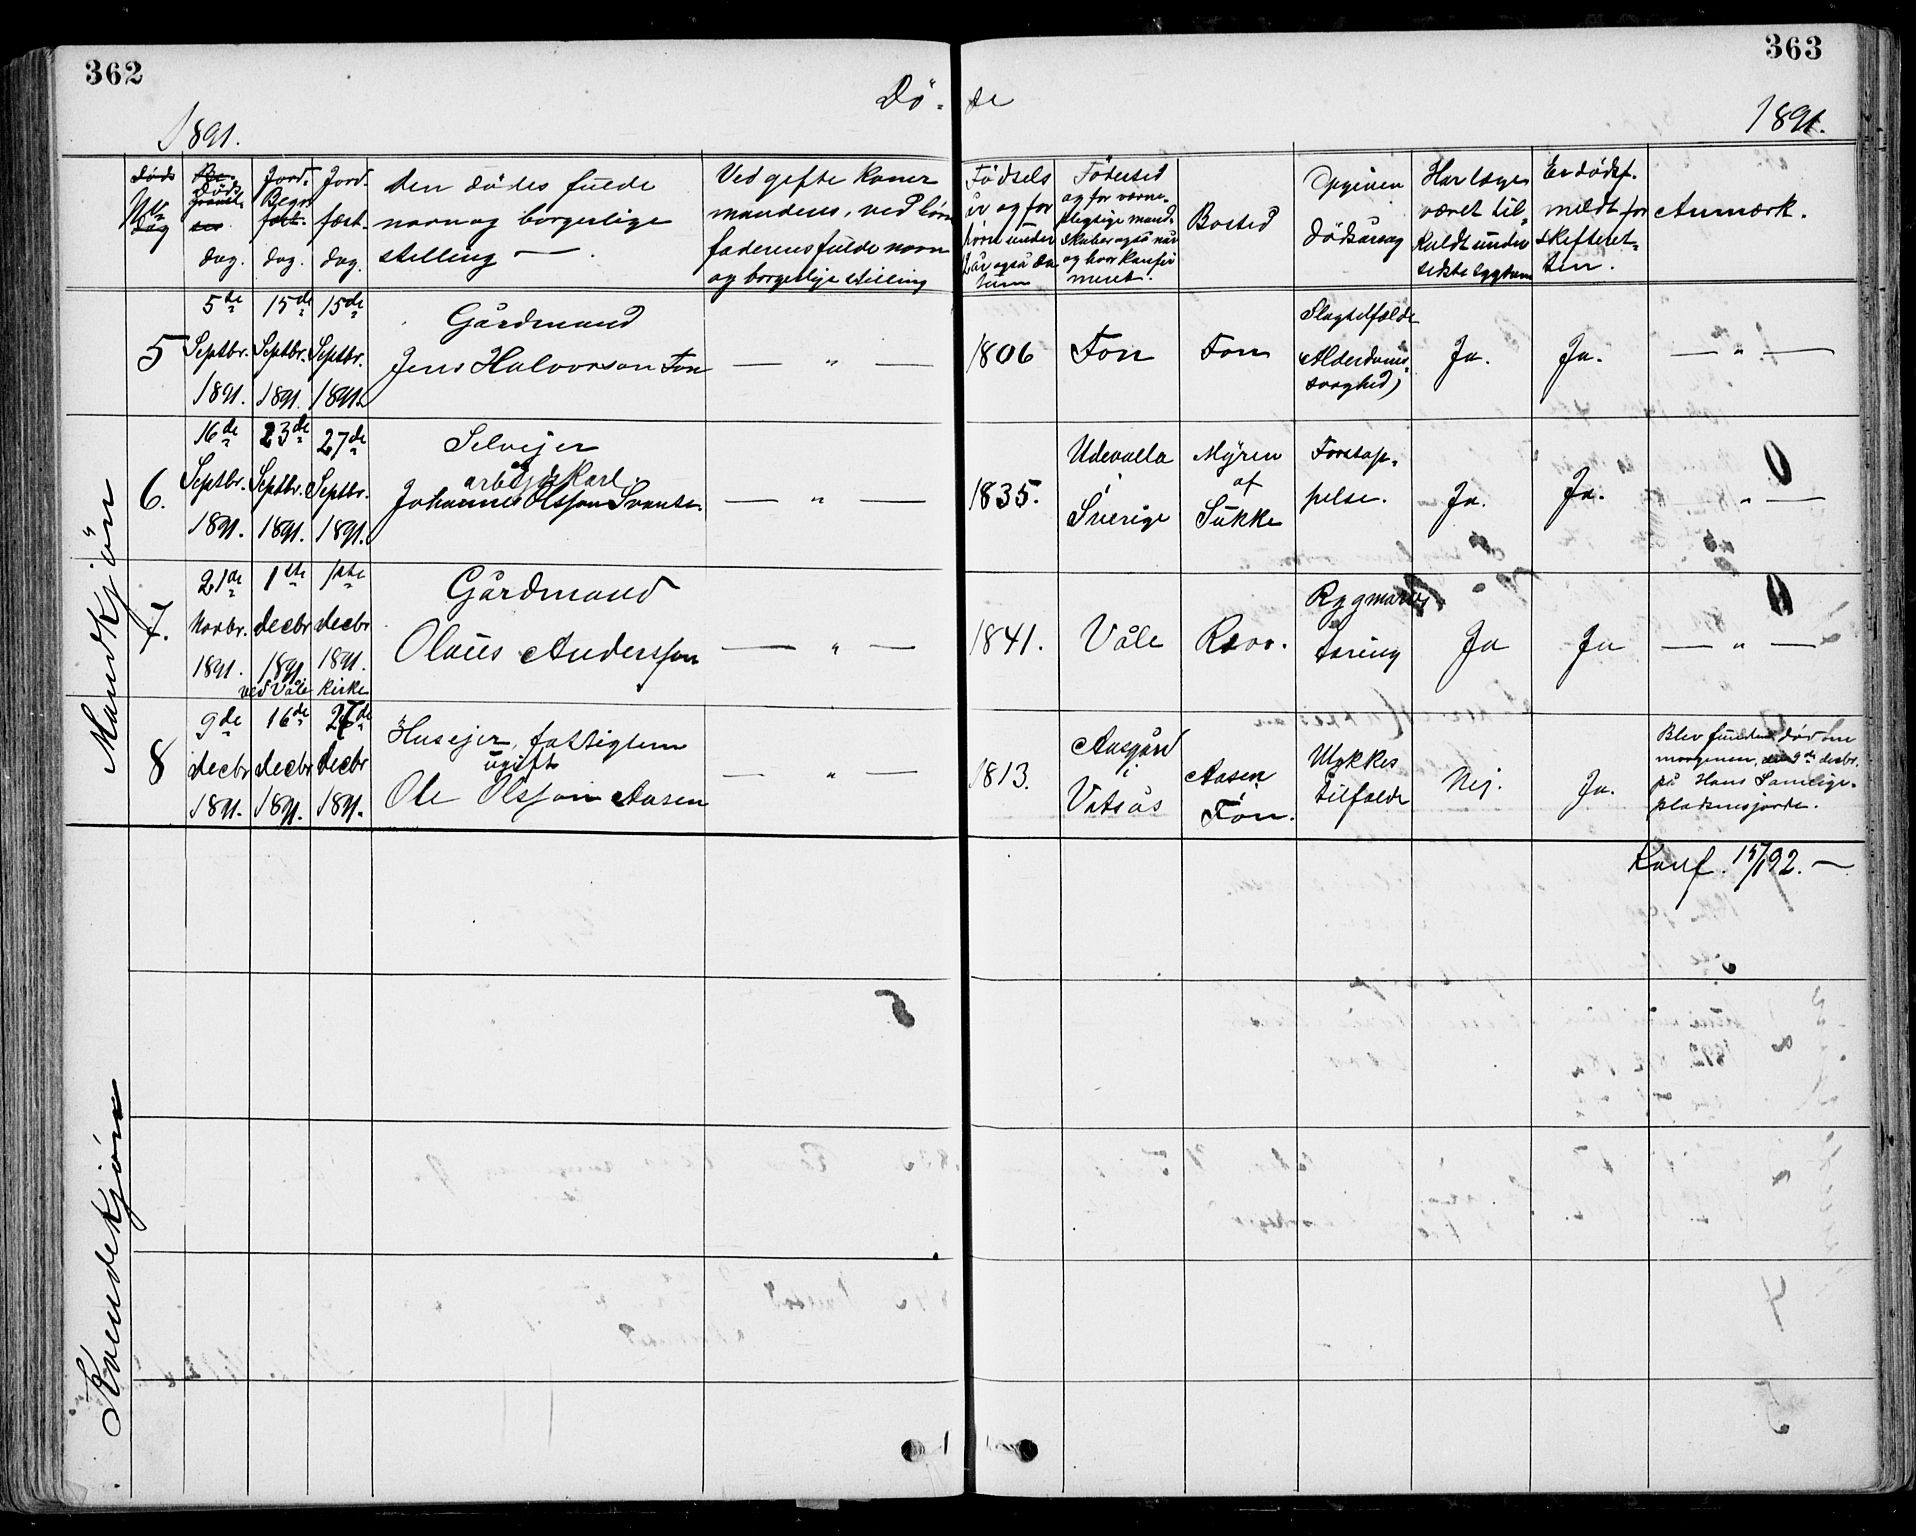 362
363
Dö-
de
1891.
1891.
Døds
No
dag
Döds
dag.
Jord.
Begr.
fæst.
dag.
Jord-
fæst-
dag.
den dödes fulde
navn og borgerlige
stilling —
Ved gifte koner
mandens, ved börn
faderens fulde navn
og borgerlige stilling
Födsels
år og for
börn under
2 år også da
tum
Födested
og for værne-
pligtige mand-
skaber også når
og hvor konfir
meret.
Bosted
Opgiven
dödsårsag
Har læge
været til-
kaldt under
sidste sygdom
Er dödsf.
meldt for
skifteret-
ten.
Anmærk.
Mandkjön
5
5de
Septbr.
1891.
15de
Septbr.
1891.
15de
Septbr.
1891.
Gårdmand
Jens Halvorson Fon
— " —
1806
Fon
Fon
Slagtilfælde
(Alderdoms-
svaghed)
Ja.
Ja.
— " —
6.
16de
Septbr.
1891.
23de
Septbr.
1891.
27de
Septbr.
1891.
Selvejer
arbejdskarl.
Johannes Olsson Svantes.
— " —
1835.
Udevalla
i
Sverige
Myren
af
Sukke
Forstop-
pelse.
Ja.
Ja.
0
" —
7.
21de
Novbr.
1891.
1ste
decbr
1891
1ste
decbr
1891.
ved Våle
kirke
Gårdmand
Olaus Andersson
— " —
1841.
Våle
Røvo.
Rygmarvs
tæring
Ja
Ja
0
— " —
8
9de
decbr
1891.
16de
decbr
1891.
27de
decbr
1891.
Husejer, fattiglem
ugift
Ole Olsson Aasen
— " —
1813.
Aasgård
i
Vatsås
Aasen
i
Fon.
Ulykkes
tilfælde
Nej.
Ja.
Blev funden död om
morgenen, den 9de decbr.
på Hans
Konf. 15/1 92. —
Kvendekjön